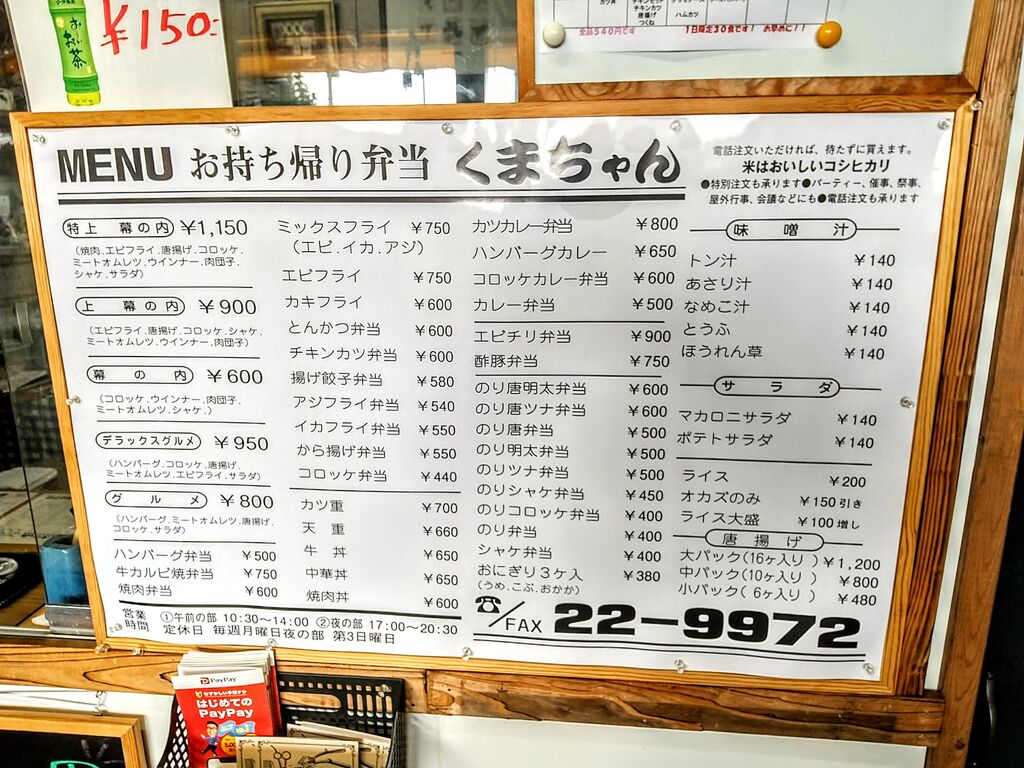 お〜いお茶
¥150-
カツ丼
チキンカツ
唐揚げ
つくね
ハムカツ
全品540円です
1日限定30食です! お早めに!!
MENU お持ち帰り弁当 くまちゃん
電話注文いただければ、待たずに買えます。
米はおいしいコシヒカリ
●特別注文も承ります●パーティー、催事、祭事、
屋外行事、会議などにも●電話注文も承ります
特上 幕の内 ¥1,150
(焼肉.エビフライ.唐揚げ.コロッケ.
ミートオムレツ.ウインナー.肉団子.
シャケ.サラダ)
上 幕の内 ¥900
(エビフライ.唐揚げ.コロッケ.シャケ.
ミートオムレツ.ウインナー.肉団子)
幕の内 ¥600
(コロッケ.ウインナー.肉団子.
ミートオムレツ.シャケ.)
デラックスグルメ ¥950
(ハンバーグ.コロッケ.唐揚げ.
ミートオムレツ.エビフライ.サラダ)
グルメ ¥800
(ハンバーグ.ミートオムレツ.唐揚げ.
コロッケ.サラダ)
ハンバーグ弁当 ¥500
牛カルビ焼弁当 ¥750
焼肉弁当 ¥600
ミックスフライ ¥750
(エビ.イカ.アジ)
エビフライ ¥750
カキフライ ¥600
とんかつ弁当 ¥600
チキンカツ弁当 ¥600
揚げ餃子弁当 ¥580
アジフライ弁当 ¥540
イカフライ弁当 ¥550
から揚げ弁当 ¥550
コロッケ弁当 ¥440
カツ重 ¥700
天重 ¥660
牛丼 ¥650
中華丼 ¥650
焼肉丼 ¥600
カツカレー弁当 ¥800
ハンバーグカレー ¥650
コロッケカレー弁当 ¥600
カレー弁当 ¥500
エビチリ弁当 ¥900
酢豚弁当 ¥750
のり唐明太弁当 ¥600
のり唐ツナ弁当 ¥600
のり唐弁当 ¥500
のり明太弁当 ¥500
のりツナ弁当 ¥500
のりシャケ弁当 ¥450
のりコロッケ弁当 ¥400
のり弁当 ¥400
シャケ弁当 ¥400
おにぎり3ケ入 ¥380
(うめ.こぶ.おかか)
味噌汁
トン汁 ¥140
あさり汁 ¥140
なめこ汁 ¥140
とうふ ¥140
ほうれん草 ¥140
サラダ
マカロニサラダ ¥140
ポテトサラダ ¥140
ライス ¥200
オカズのみ ¥150引き
ライス大盛 ¥100増し
唐揚げ
大パック(16ヶ入り) ¥1,200
中パック(10ヶ入り) ¥800
小パック(6ヶ入り) ¥480
営業時間 ①午前の部 10:30〜14:00 ②夜の部 17:00〜20:30
定休日 毎週月曜日夜の部 第3日曜日
☎/FAX 22-9972
PayPay
はじめての
PayPay